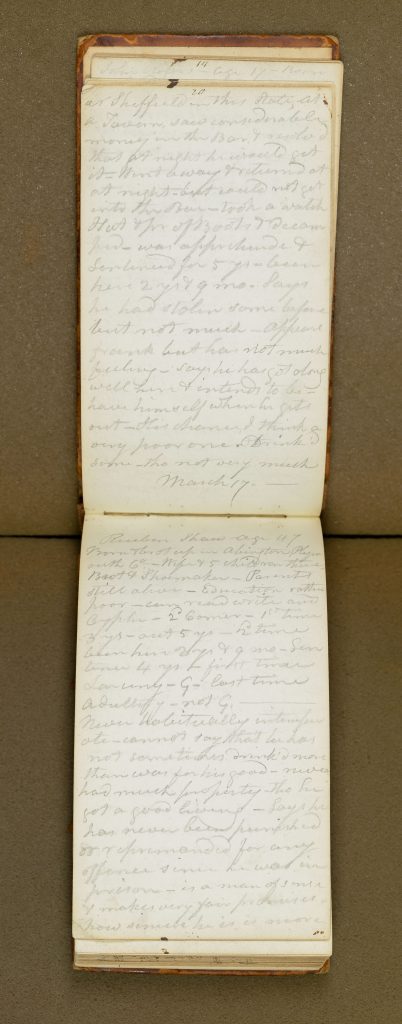 14
20
at Sheffield in this State, at
a Tavern, saw considerable
money in the Bar, & resolved
that at night he would get
it - Went away & returned at
at night - but could not get
into the Bar - took a watch
Hat & pr of Boots & decam
ped - was apprehended &
Sentenced for 5 yrs - been
here 2 yrs & 9 mo - Says
he had stolen some before
but not much - Appears
frank but has not much
feeling - says he has got along
well here & intends to be-
have himself when he gets
out - His chance, I think a
very poor one - Drink'd
some - tho not very much
March 17.
Reuben Shaw age 47
Born & brot up in Abington, Plym
outh Co - Wife & 5 children there
Boot & Shoemaker - Parents
still alive - Education rather
poor - can read write and
Cypher - 2d Comer - 1st time
2 yrs - out 5 yrs - 2d time
been here 2 yrs & 9 mo - Sen
tence 4 yrs - first time
Larceny - G - last time
Adultery - not G.
Never habitually intemper
ate - cannot say that he has
not sometimes drink'd more
than was for his good - never
had much property tho
got a good living - Says he
has never been punished
or reprimanded for any
offence since he was in
prison - is a man of sense
& makes very fair promises -
how sincere he is is more